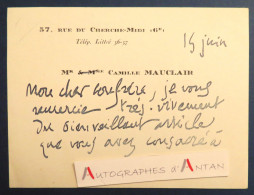 57, RUE DU CHERCHE-MIDI (6e)
Télép. Littré 36-57
15 juin
Mr & Mme CAMILLE MAUCLAIR
Mon cher confrère, je vous
remercie très vivement
du bienveillant article
que vous avez consacré à
AUTOGRAPHES D'ANTAN